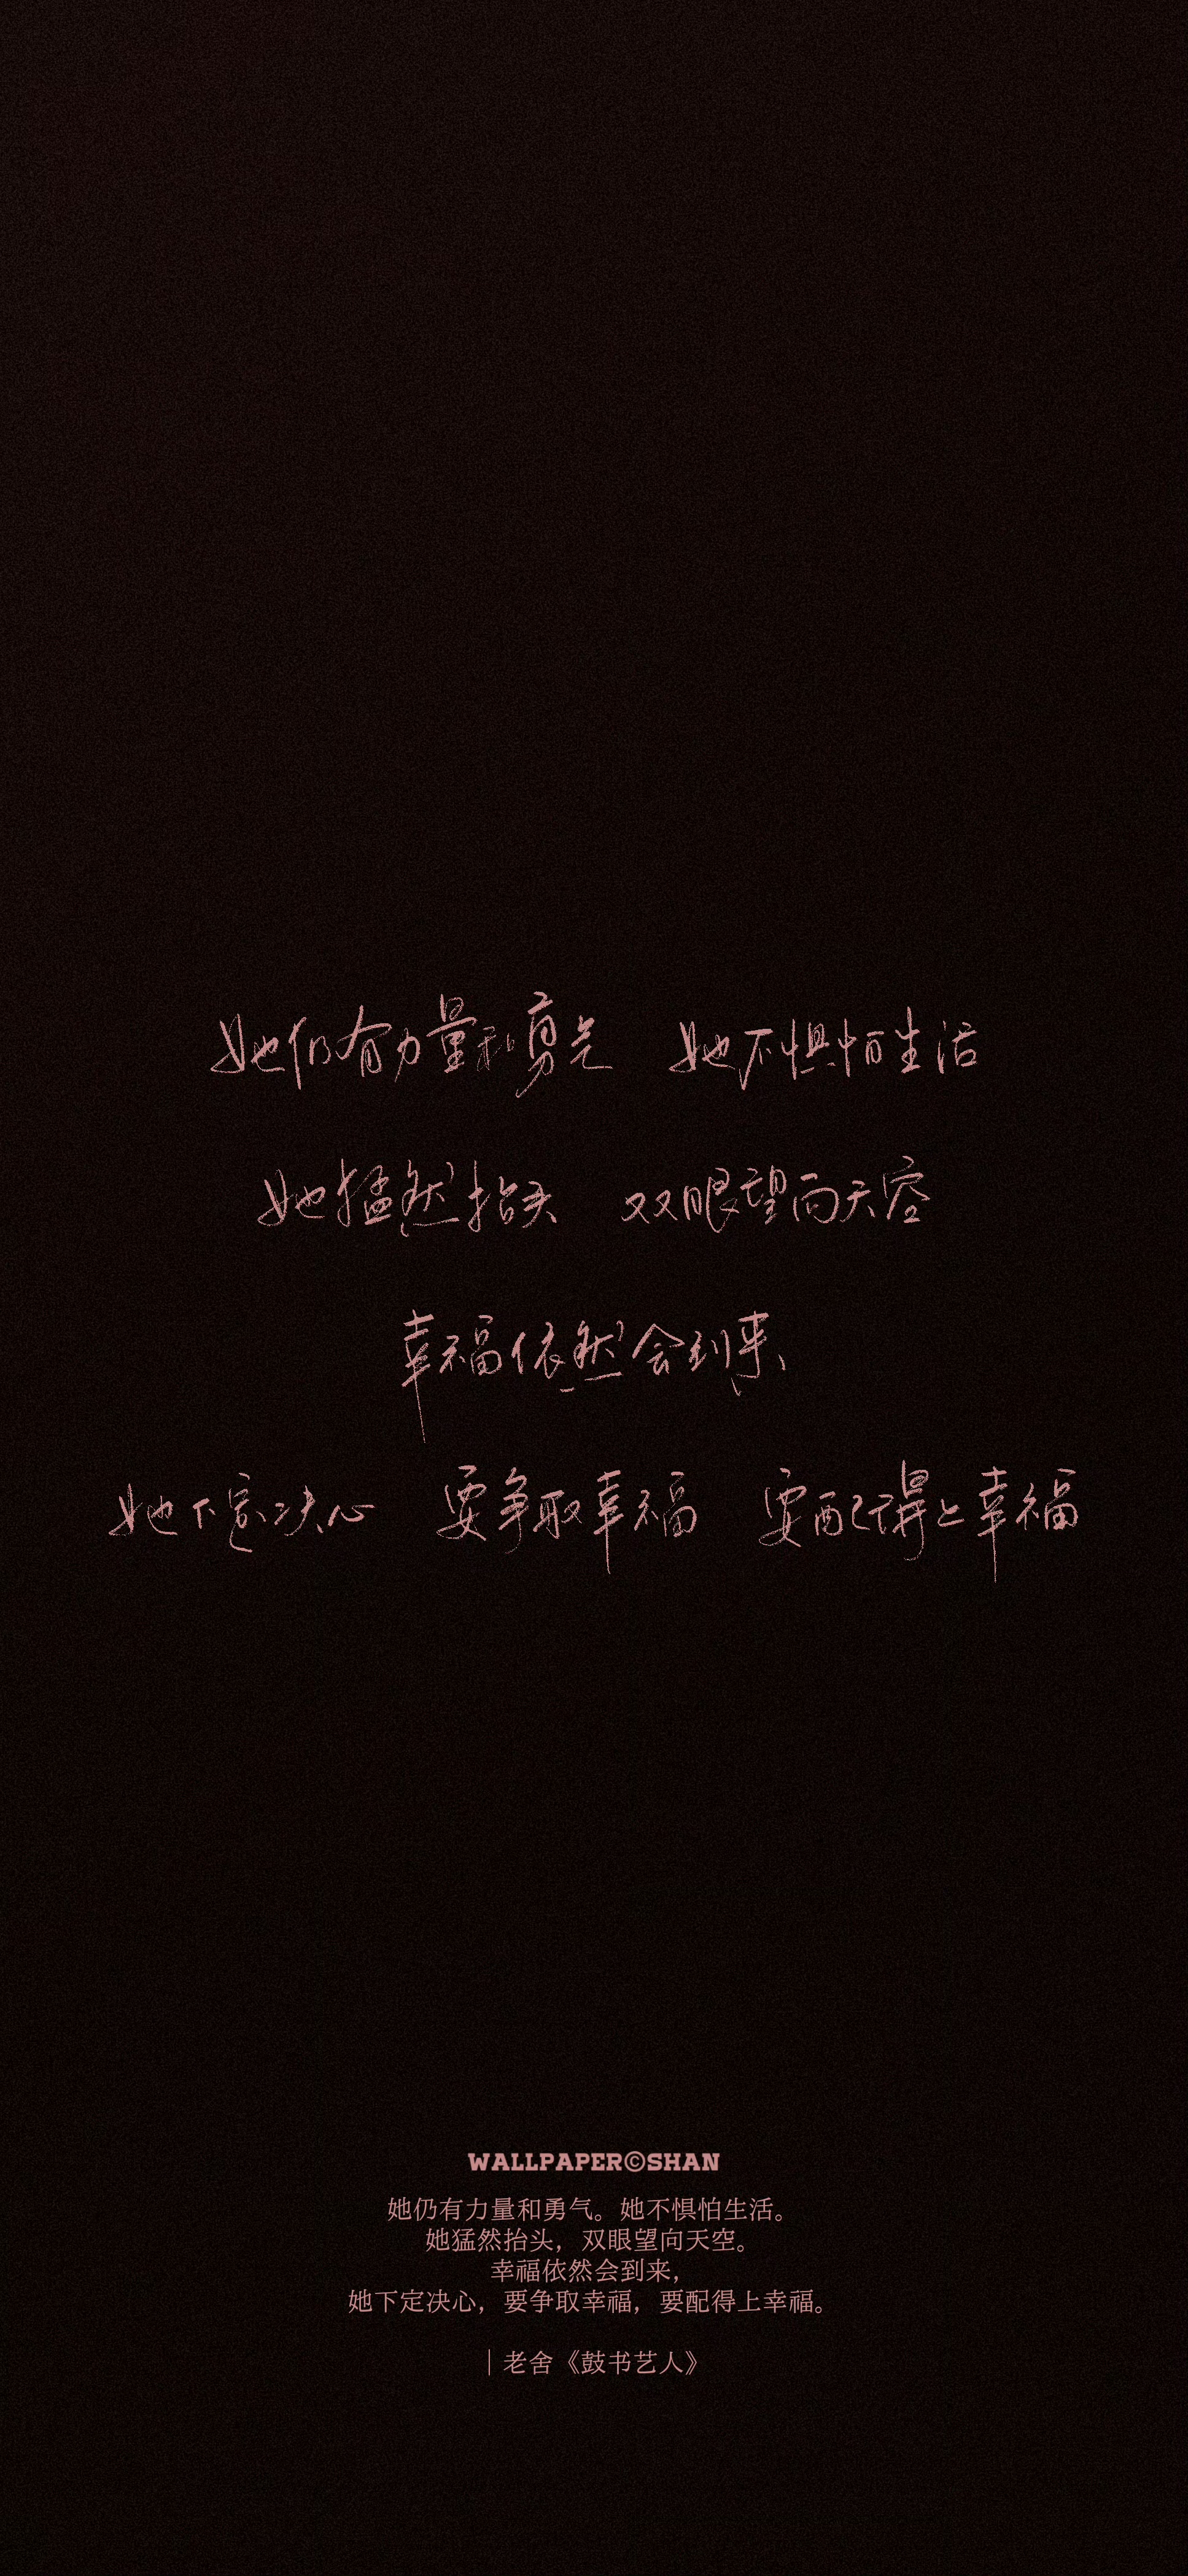 她仍有力量和勇气 她不惧怕生活
她猛然抬头 双眼望向天空
幸福依然会到来
她下定决心 要争取幸福 要配得上幸福
WALLPAPER©SHAN
她仍有力量和勇气。她不惧怕生活。
她猛然抬头，双眼望向天空。
幸福依然会到来，
她下定决心，要争取幸福，要配得上幸福。
｜老舍《鼓书艺人》